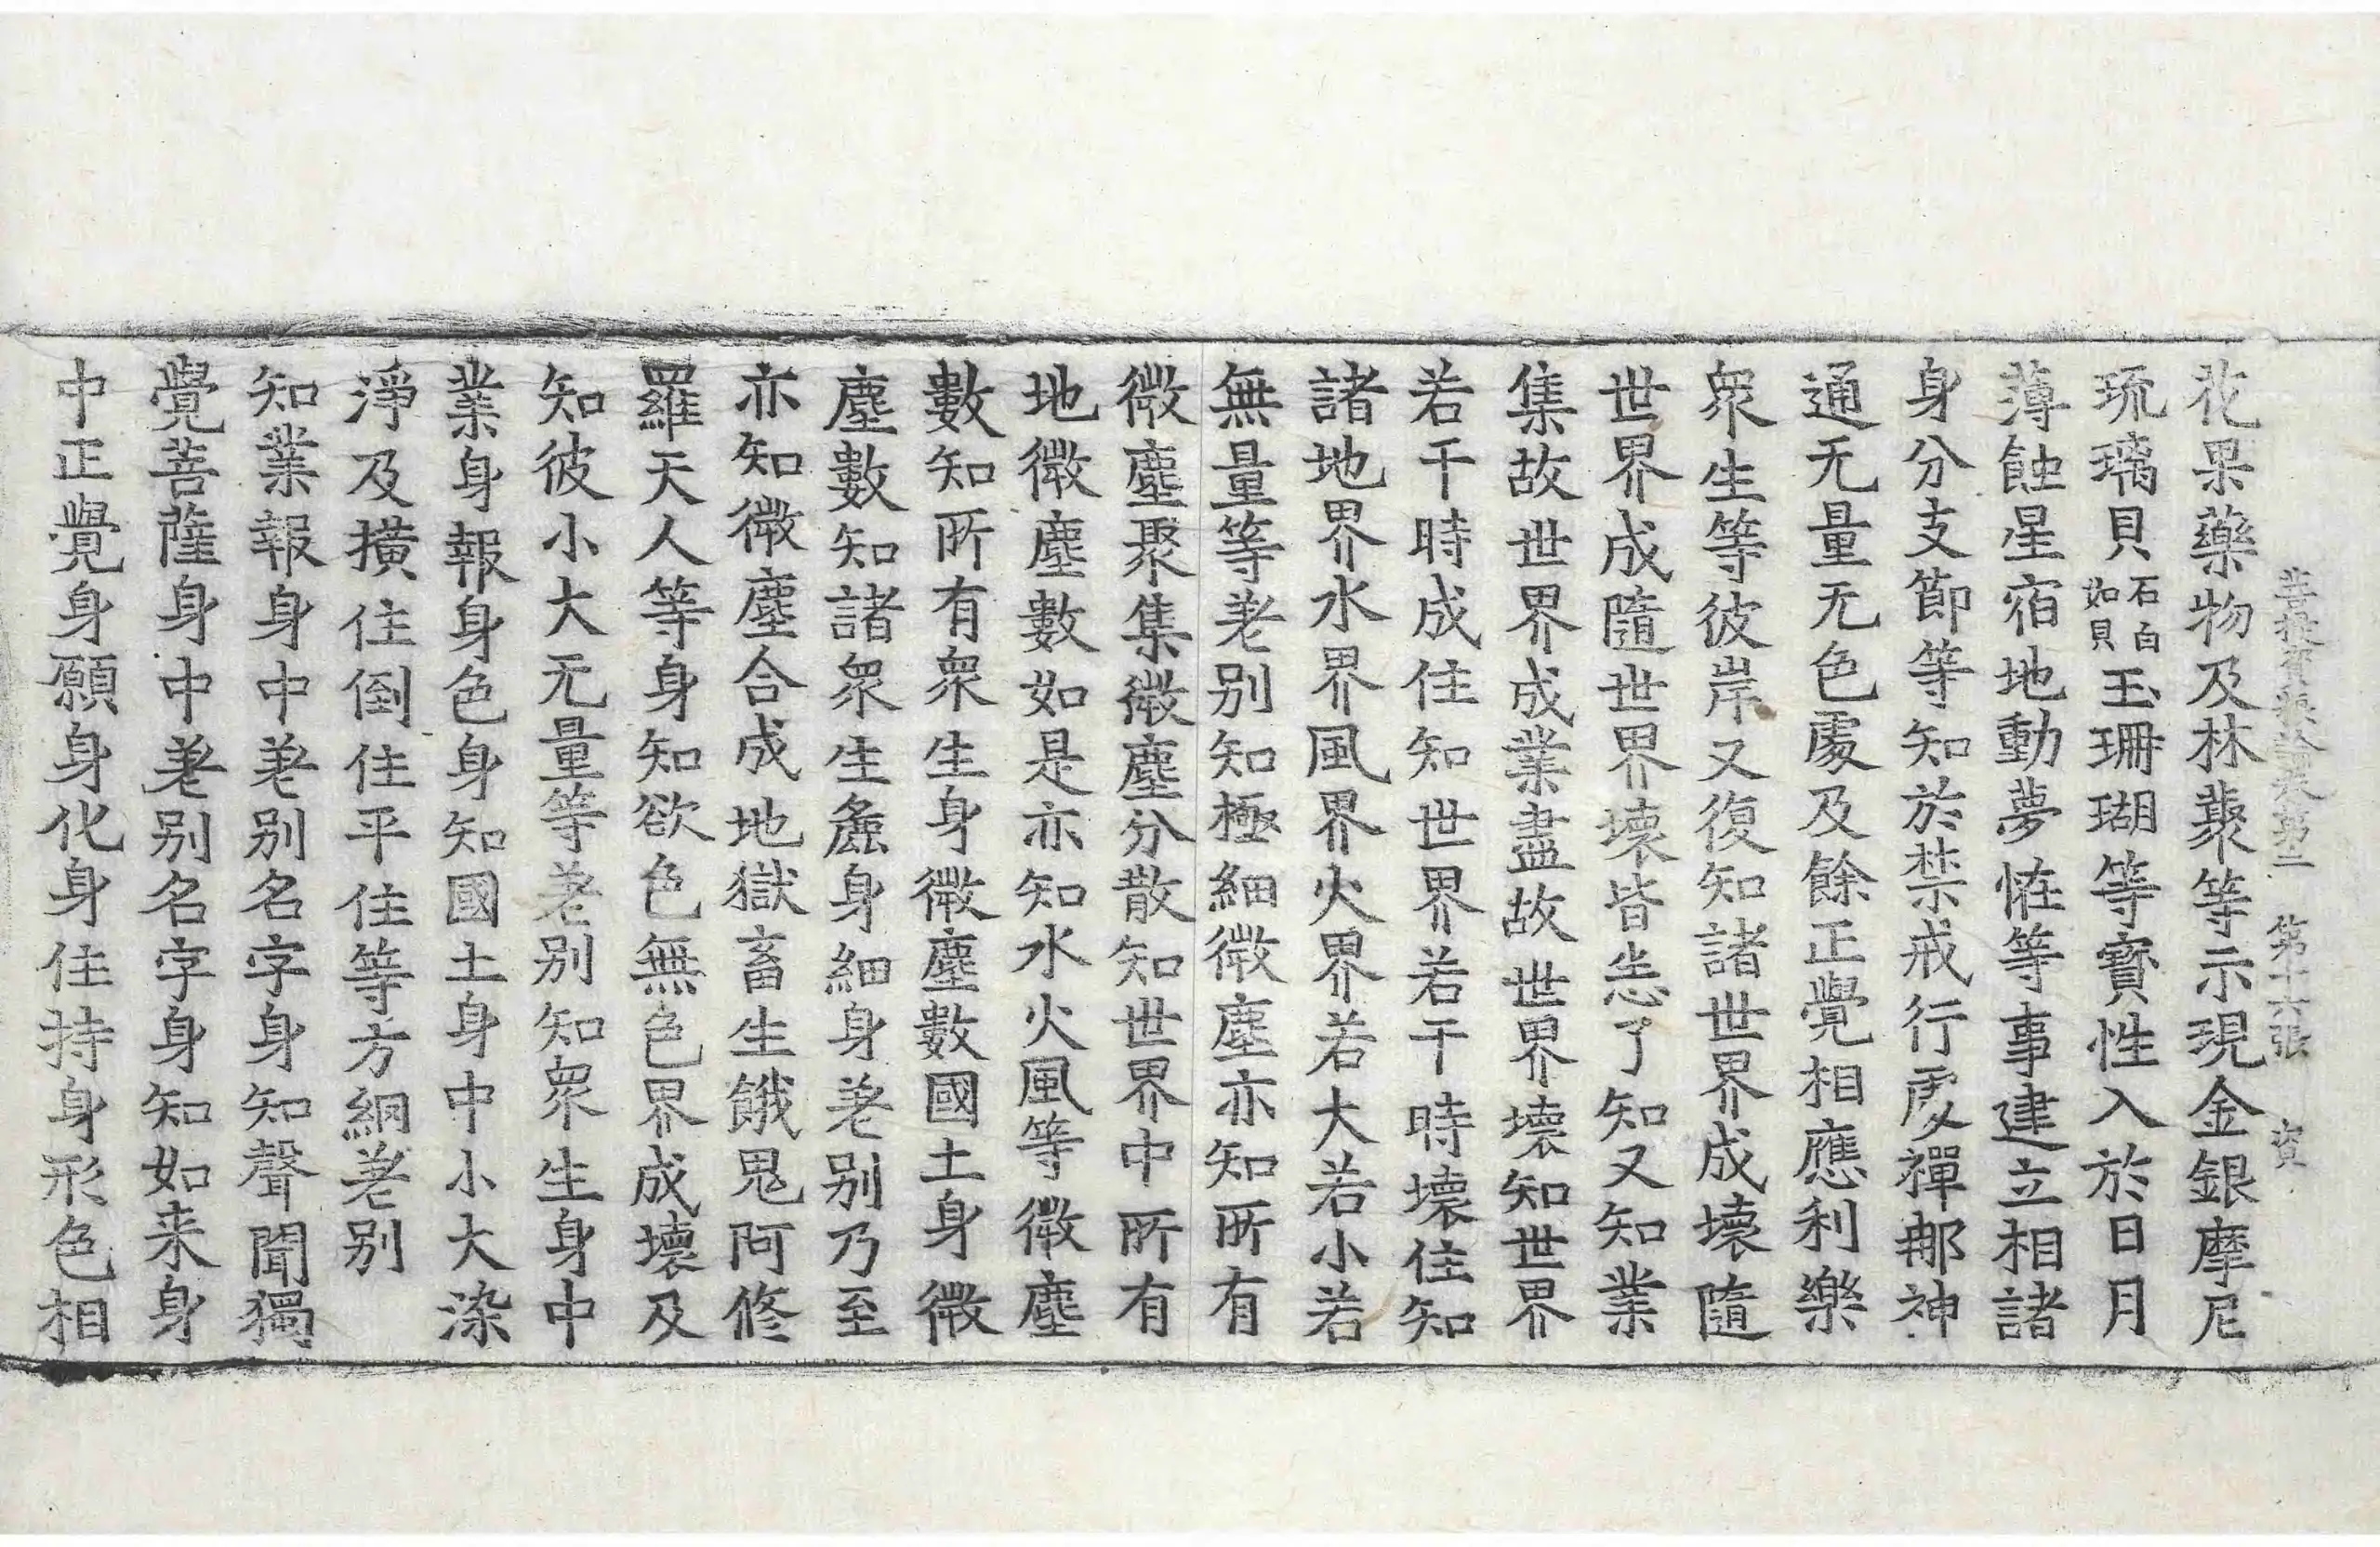 菩提資糧論卷第二 第十六張 資
花果藥物及林藂等示現金銀摩尼
琉璃貝石白如貝玉珊瑚等寳性入於日月
薄蝕星宿地動夢恠等事建立相諸
身分支節等知於禁戒行處禪那神
通无量无色處及餘正覺相應利樂
衆生等彼岸又復知諸世界成壞隨
世界成隨世界壞皆悉了知又知業
集故世界成業盡故世界壞知世界
若干時成住知世界若干時壞住知
諸地界水界風界火界若大若小若
無量等差别知極細微塵亦知所有
微塵聚集微塵分散知世界中所有
地微塵數如是亦知水火風等微塵
數知所有衆生身微塵數國土身微
塵數知諸衆生麁身細身差别乃至
亦知微塵合成地獄畜生餓鬼阿修
羅天人等身知欲色無色界成壞及
知彼小大无量等差别知衆生身中
業身報身色身知國土身中小大染
淨及撗住倒住平住等方網差别
知業報身中差别名字身知聲聞獨
覺菩薩身中差别名字身知如来身
中正覺身願身化身住持身形色相